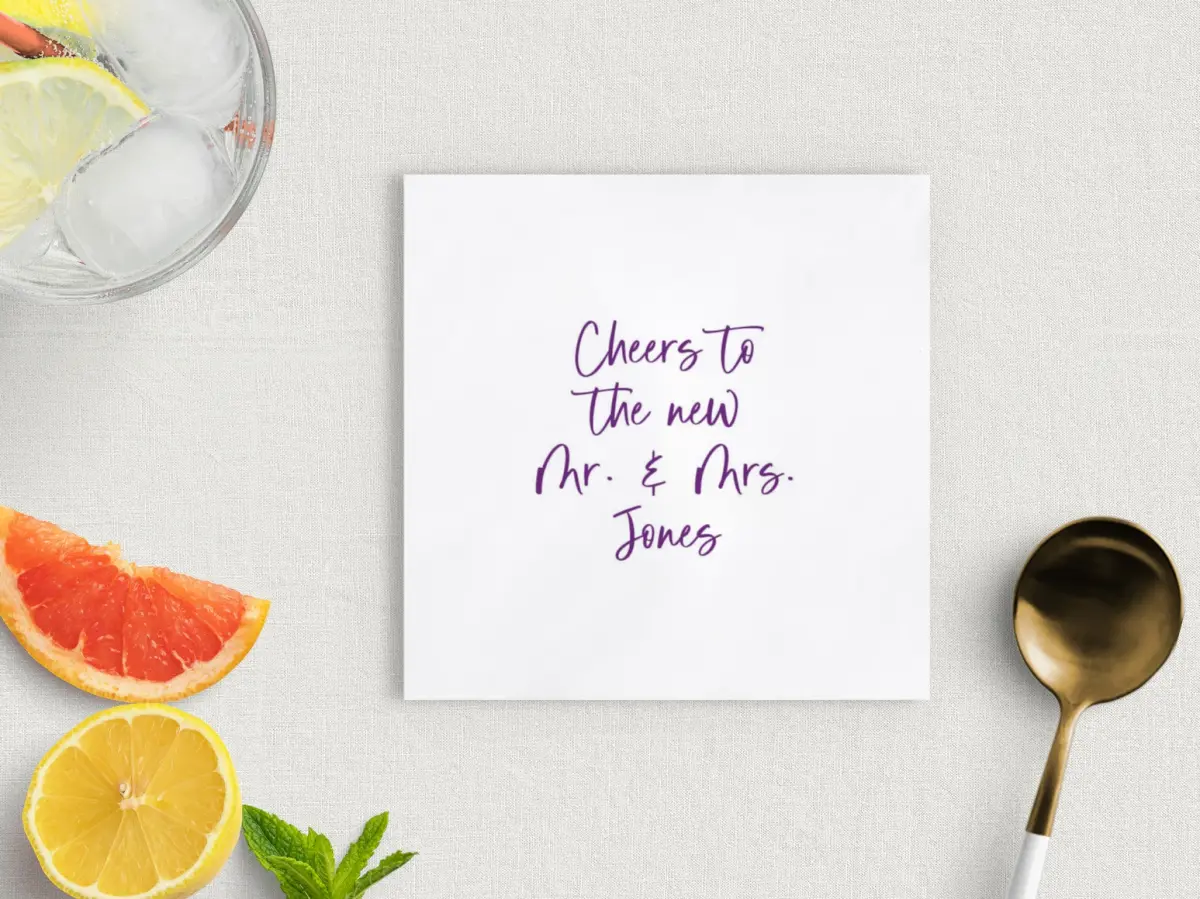 Cheers to
the new
Mr. & Mrs.
Jones